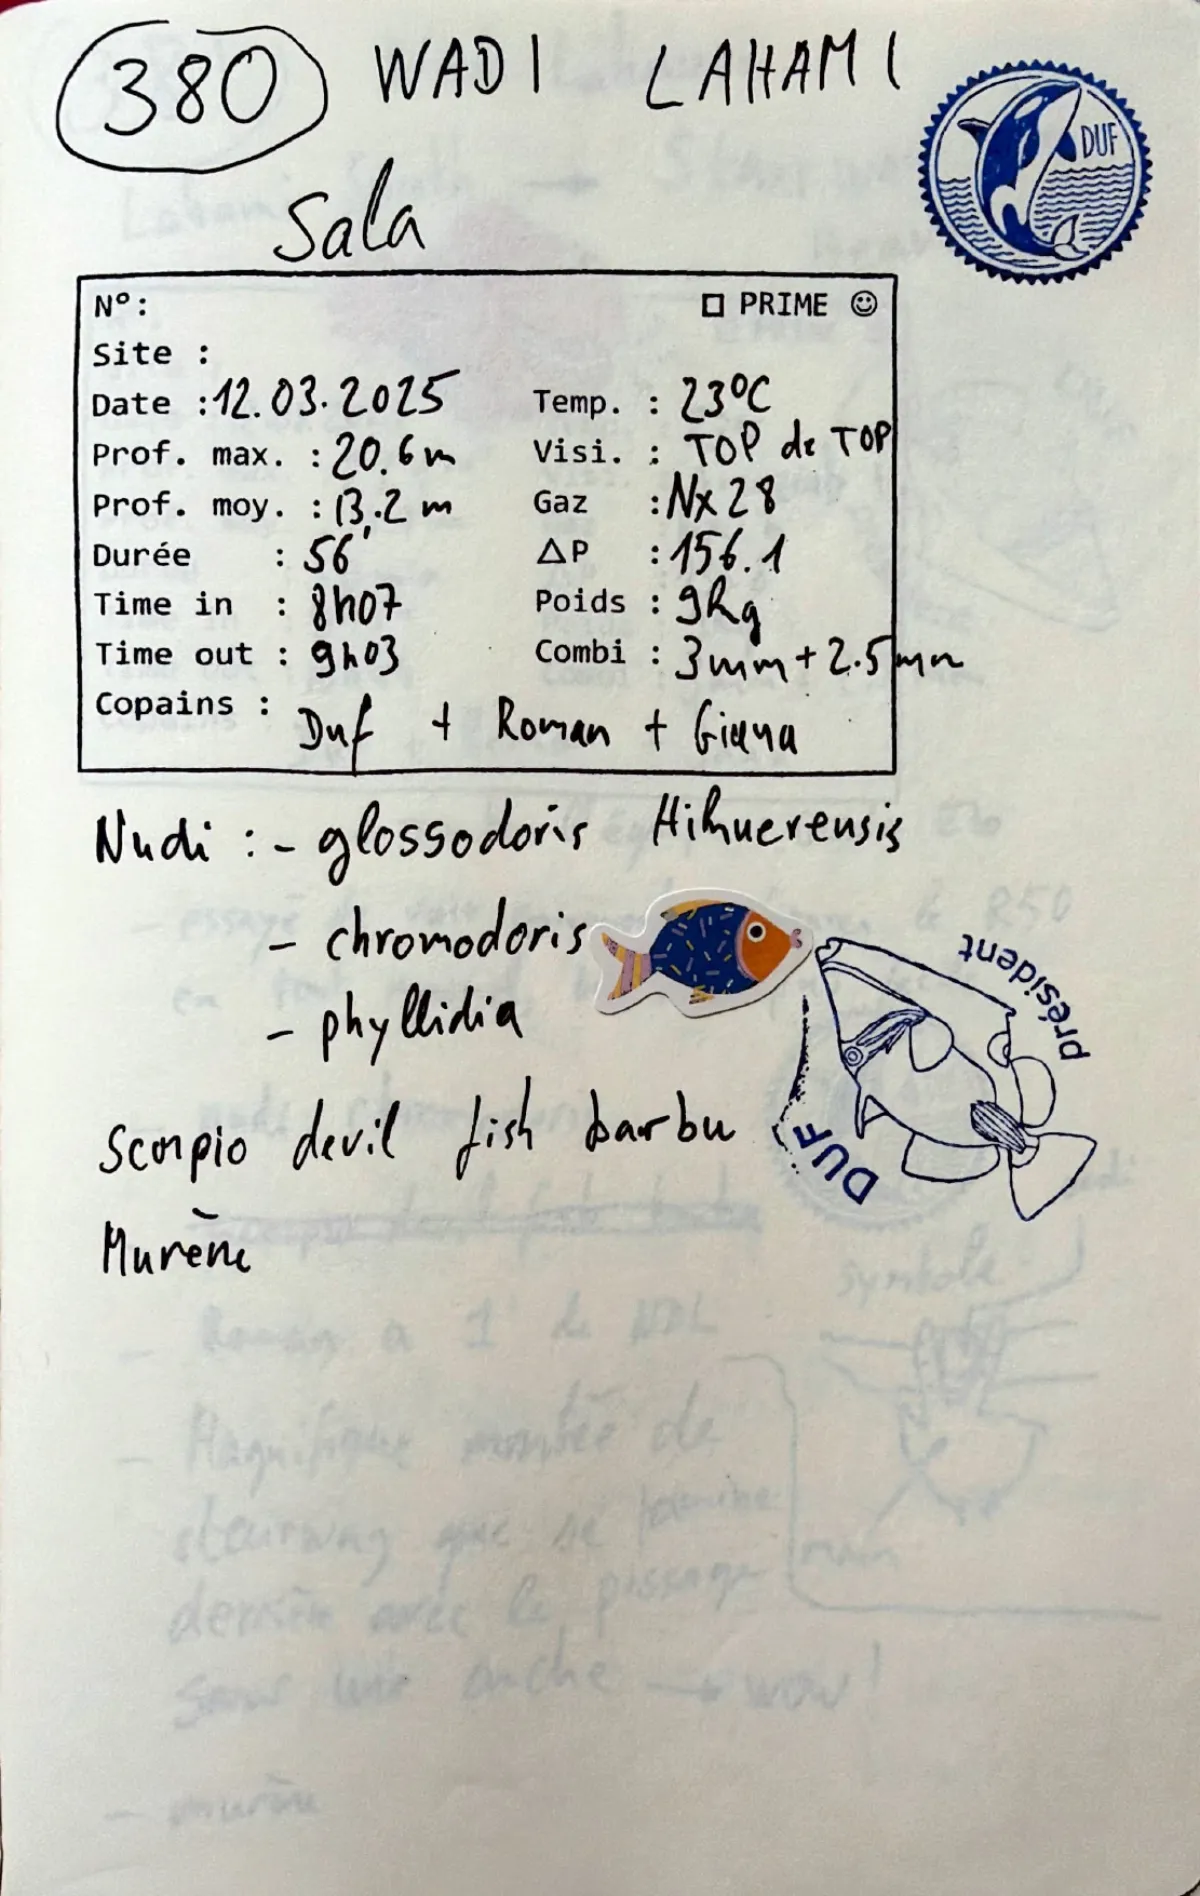 380 WADI LAHAMI
DUF
Sala
N°: ☐ PRIME ☺
Site :
Date : 12.03.2025 Temp. : 23°C
Prof. max. : 20.6 m Visi. : TOP de TOP
Prof. moy. : 13.2 m Gaz : Nx 28
Durée : 56' ΔP : 156.1
Time in : 8h07 Poids : 9kg
Time out : 9h03 Combi : 3mm + 2.5mm
Copains : Duf + Roman +
Nudi : - glossodoris
- chromodoris
- phyllidia
président
DUF
Scorpio devil fish barbu
Murène